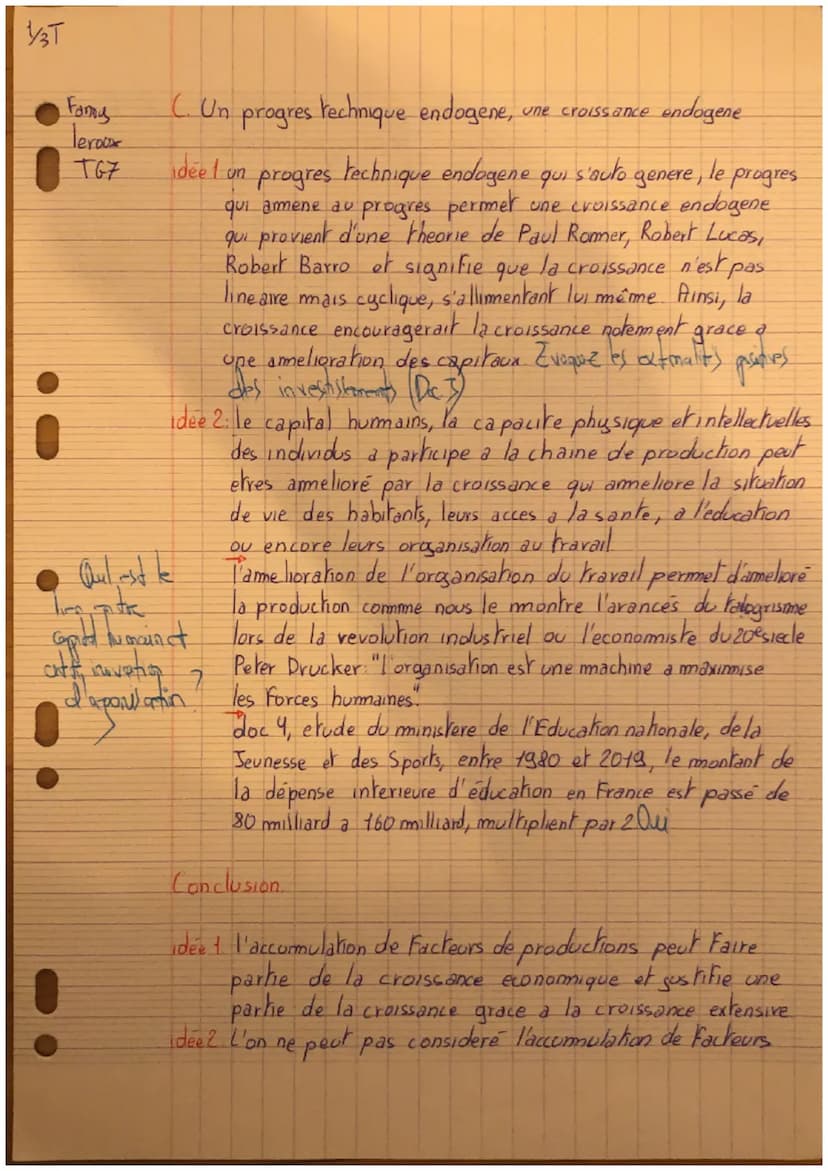 1/3T
Fanny
leroux
TG7
C. Un progres technique endogene, une croissance endogene
idée 1 un progres technique endogene qui s'auto genere, le progres
qui amene au progres permet une croissance endogene
qui provient d'une theorie de Paul Romer, Robert Lucas,
Robert Barro et signifie que la croissance n'est pas
lineaire mais cyclique, s'allimentant lui même. Ainsi, la
croissance encouragerait la croissance notement grace a
une amelioration des capitaux Evoquez les externalités positives
des investissements (Doc 3)
idée 2: le capital humains, la capacite physique et intellectuelles
des individus a participe a la chaine de production peut
etres amelioré par la croissance qui ameliore la situation
de vie des habitants, leurs acces a la sante, a l'education
ou encore leurs organisation au travail
→ l'amelioration de l'organisation du travail permet d'amelioré
la production comme nous le montre l'avancés du
lors de la revolution industriel ou l'economiste du 20e siecle
Peter Drucker: "l'organisation est une machine a maximise
les Forces humaines".
→ doc 4, etude du ministere de l'Education nationale, de la
Jeunesse et des Sports, entre 1980 et 2019, le montant de
la dépense interieure d'éducation en France est passé de
80 milliard a 160 milliard, multiplient par 2 Oui
Quel est le
lien entre
capital humain et
innovation
?
Conclusion.
idée 1 l'accumulation de Facteurs de productions peut Faire
partie de la croissance economique et justifie une
partie de la croissance grace a la croissance extensive
idée 2 L'on ne peut pas consideré l'accumulation de Facteurs